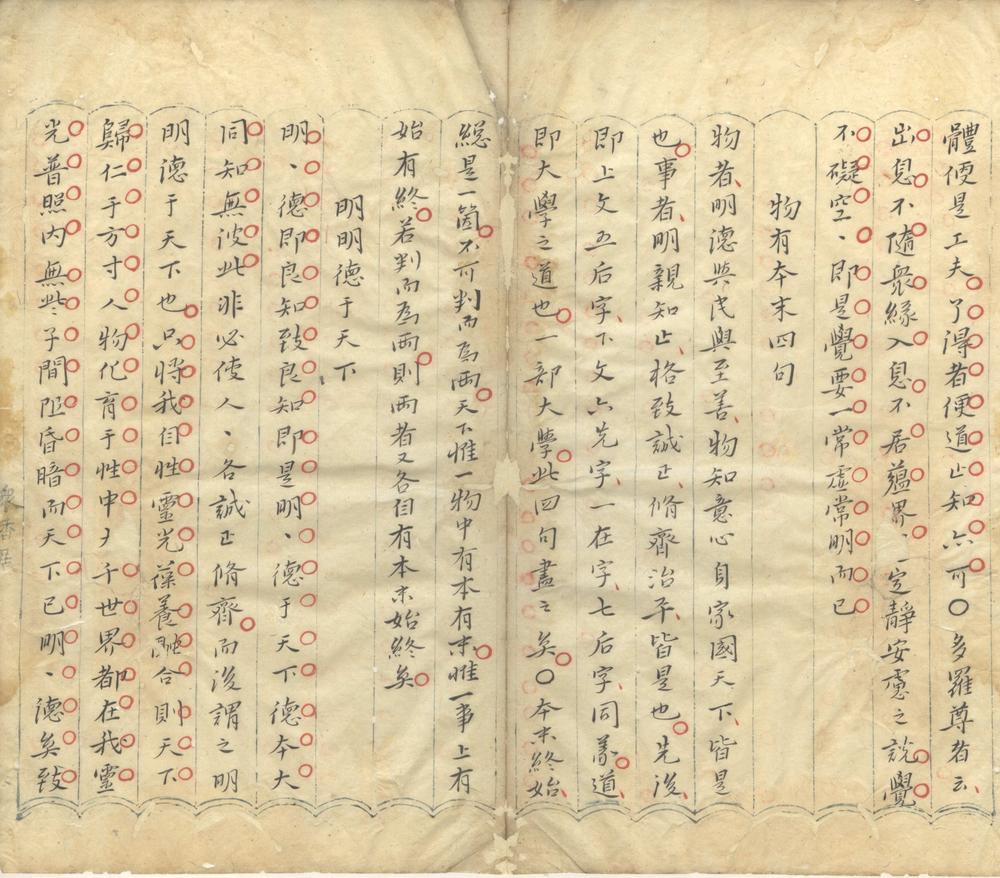 體便是工夫了得者便道止知亦可〇多羅尊者云
出息不隨衆緣入息不居蘊界、定靜安慮之說覺
不礙空、即是覺要一常虛常明而已
物有本末四句
物者明德與民與至善物知意心身家國天下皆是
也事者明親知止格致誠正脩齊治平皆是也先後
即上文五后字下文六先字一在字七后字同義道
即大學之道也一部大學此四句盡之矣〇本末終始
總是一箇不可判而為兩天下惟一物中有本有末惟一事上有
始有終若判而為兩則兩者又各自有本末始終矣
明明德于天下
明、德即良知致良知即是明、德于天下德本大
同知無彼此非必使人、各誠正脩齊而後謂之明
明德于天下也只將我自性靈光葆養融合則天下
歸仁于方寸人物化育于性中大千世界都在我靈
光普照內無些子間阻昏暗而天下已明、德矣致